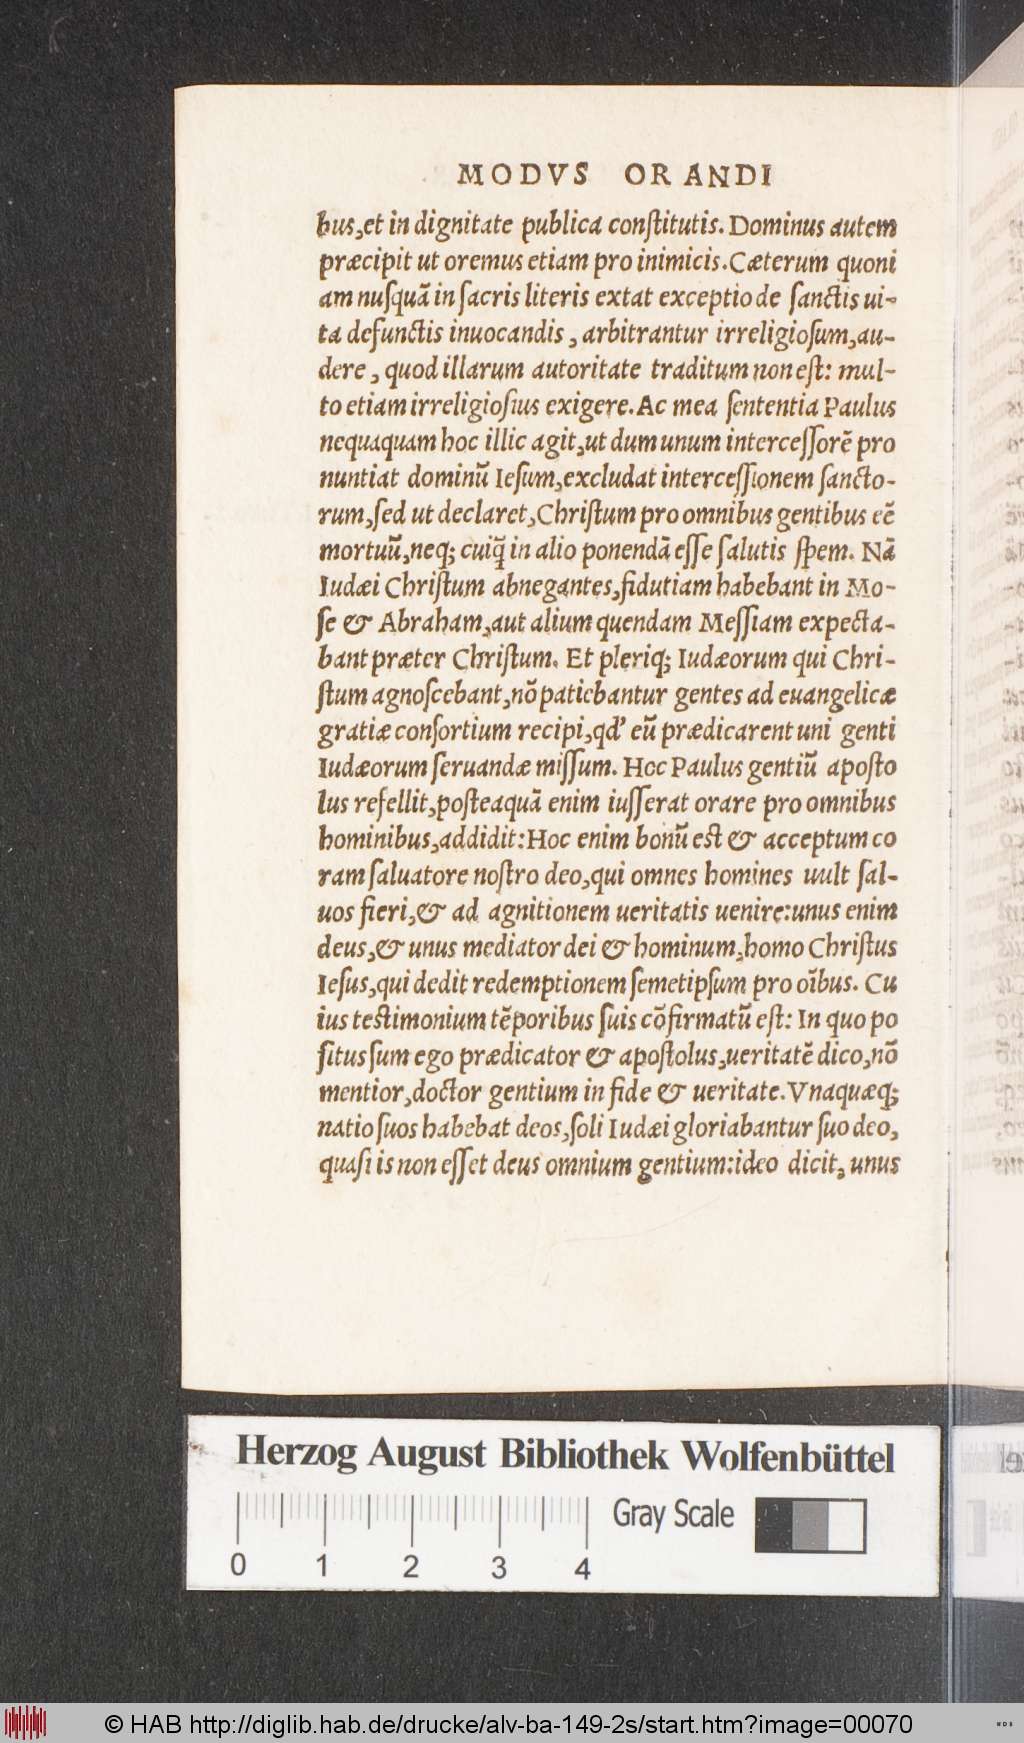 MODVS ORANDI
bus,et in dignitate publica conſtitutis. Dominus autem
præcipit ut oremus etiam pro inimicis. Cæterum quoni
am nuſquã in ſacris literis extat exceptio de ſanctis ui-
ta defunctis inuocandis, arbitrantur irreligioſum, au-
dere, quod illarum autoritate traditum non eſt: mul-
to etiam irreligioſius exigere. Ac mea ſententia Paulus
nequaquam hoc illic agit, ut dum unum interceſſorẽ pro
nuntiat dominũ Ieſum, excludat interceſſionem ſancto-
rum, ſed ut declaret, Chriſtum pro omnibus gentibus eẽ
mortuũ, neq; cuiq̃ in alio ponendã eſſe ſalutis ſpem. Nã
Iudæi Chriſtum abnegantes, fidutiam habebant in Mo-
ſe & Abraham, aut alium quendam Meſſiam expecta-
bant præter Chriſtum. Et pleriq; Iudæorum qui Chri-
ſtum agnoſcebant, nõ patiebantur gentes ad euangelicæ
gratiæ conſortium recipi, qd' eũ prædicarent uni genti
Iudæorum ſeruandæ miſſum. Hoc Paulus gentiũ apoſto
lus refellit, poſteaquã enim iuſſerat orare pro omnibus
hominibus, addidit: Hoc enim bonũ eſt & acceptum co
ram ſaluatore noſtro deo, qui omnes homines uult ſal-
uos fieri, & ad agnitionem ueritatis uenire: unus enim
deus, & unus mediator dei & hominum, homo Chriſtus
Ieſus, qui dedit redemptionem ſemetipſum pro oĩbus. Cu
ius teſtimonium tẽporibus ſuis cõfirmatũ eſt: In quo po
ſitus ſum ego prædicator & apoſtolus, ueritatẽ dico, nõ
mentior, doctor gentium in fide & ueritate. Vnaquæq;
natio ſuos habebat deos, ſoli Iudæi gloriabantur ſuo deo,
quaſi is non eſſet deus omnium gentium: ideo dicit, unus
Herzog August Bibliothek Wolfenbüttel
Gray Scale
0 1 2 3 4
© HAB http://diglib.hab.de/drucke/alv-ba-149-2s/start.htm?image=00070